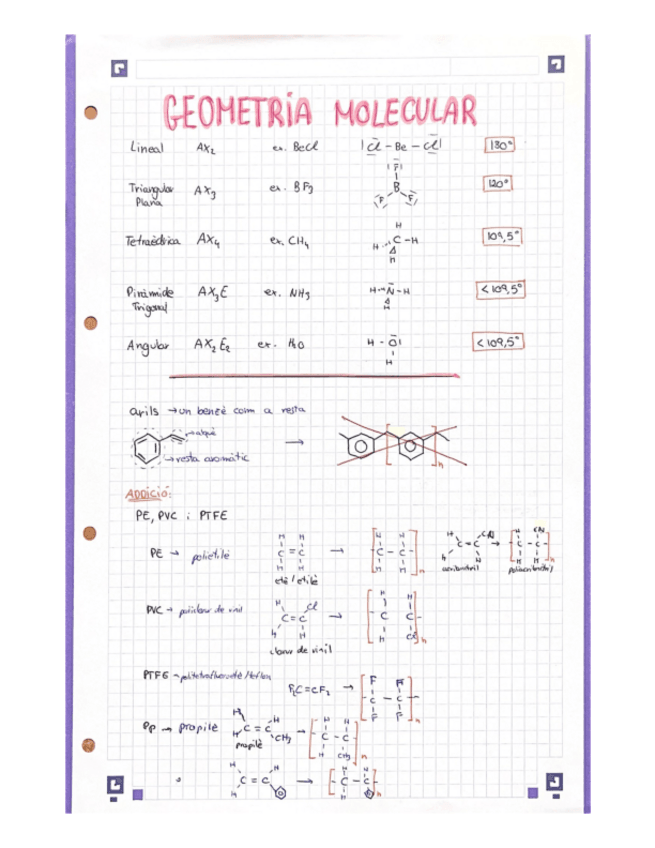 GEOMETRIA MOLECULAR
Lineal AX₂ ex. BeCl |Cl - Be - Cl| 180°
Triangular Plana AX₃ ex. BF₃ |F| B F F 120°
Tetraèdrica AX₄ ex. CH₄ H H C - H H 109,5°
Piràmide Trigonal AX₃E ex. NH₃ H - N - H H < 109,5°
Angular AX₂E₂ ex. H₂O H - O| H < 109,5°
arils → un benzè com a resta
alquè
→ resta aromàtic
n
ADDICIÓ:
PE, PVC i PTFE
PE → polietilè
H H
C = C
H H
etè / etilè
→
H H
- C - C -
H H n
H CN
C = C
H H
acrilonitril
→
H CN
- C - C -
H H n
poliacrilonitril
PVC → policlorur de vinil
H Cl
C = C
H H
clorur de vinil
→
H H
C C
H Cl n
PTFE → politetrafluoroetè / teflón
F₂C = CF₂ →
F F
- C - C -
F F n
Pp → propilè
H H
C = C
H CH₃
propilè
→
H H
- C - C -
H CH₃ n
H H
C = C
H
→
H H
- C - C -
H n